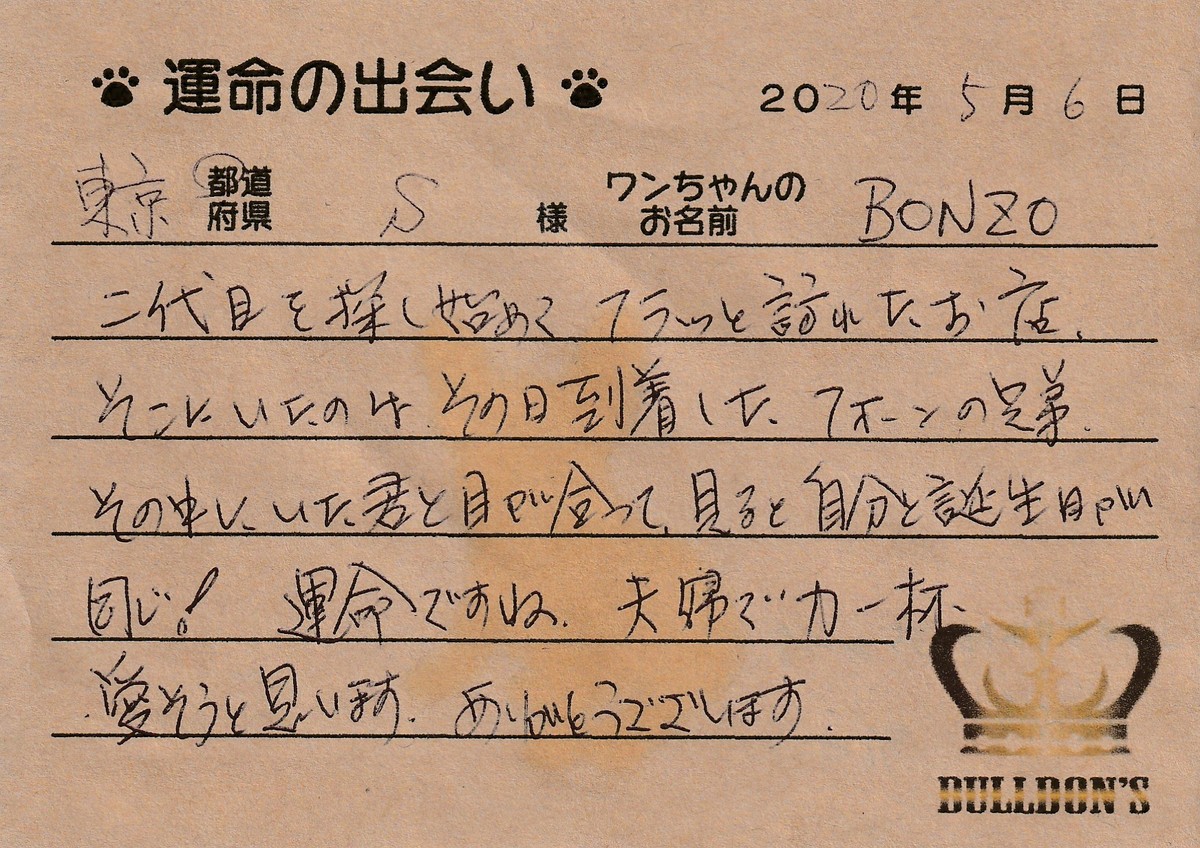 運命の出会い 2020年 5月 6日
東京 都道府県 S 様 ワンちゃんのお名前 BONZO
二代目を探し始めて、フラッと訪れたお店、
そこにいたのは、その日到着した、フォーンの兄弟.
その中に、いた君と目が合って、見ると自分と誕生日が
同じ! 運命ですね. 夫婦で力一杯、
愛そうと思います. ありがとうございます.
BULLDON'S